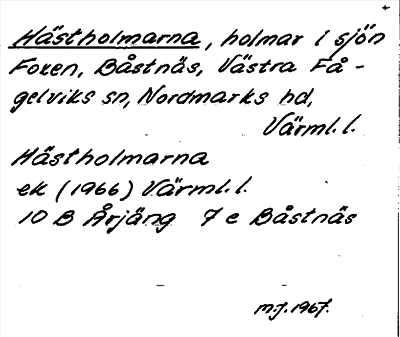 Hästholmarna, holmar i sjön
Foxen, Båstnäs, Västra Få-
gelviks sn, Nordmarks hd,
Värml. l.
Hästholmarna
ek (1966) Värml. l.
10 B Årjäng 7 e Båstnäs
M.J. 1967.